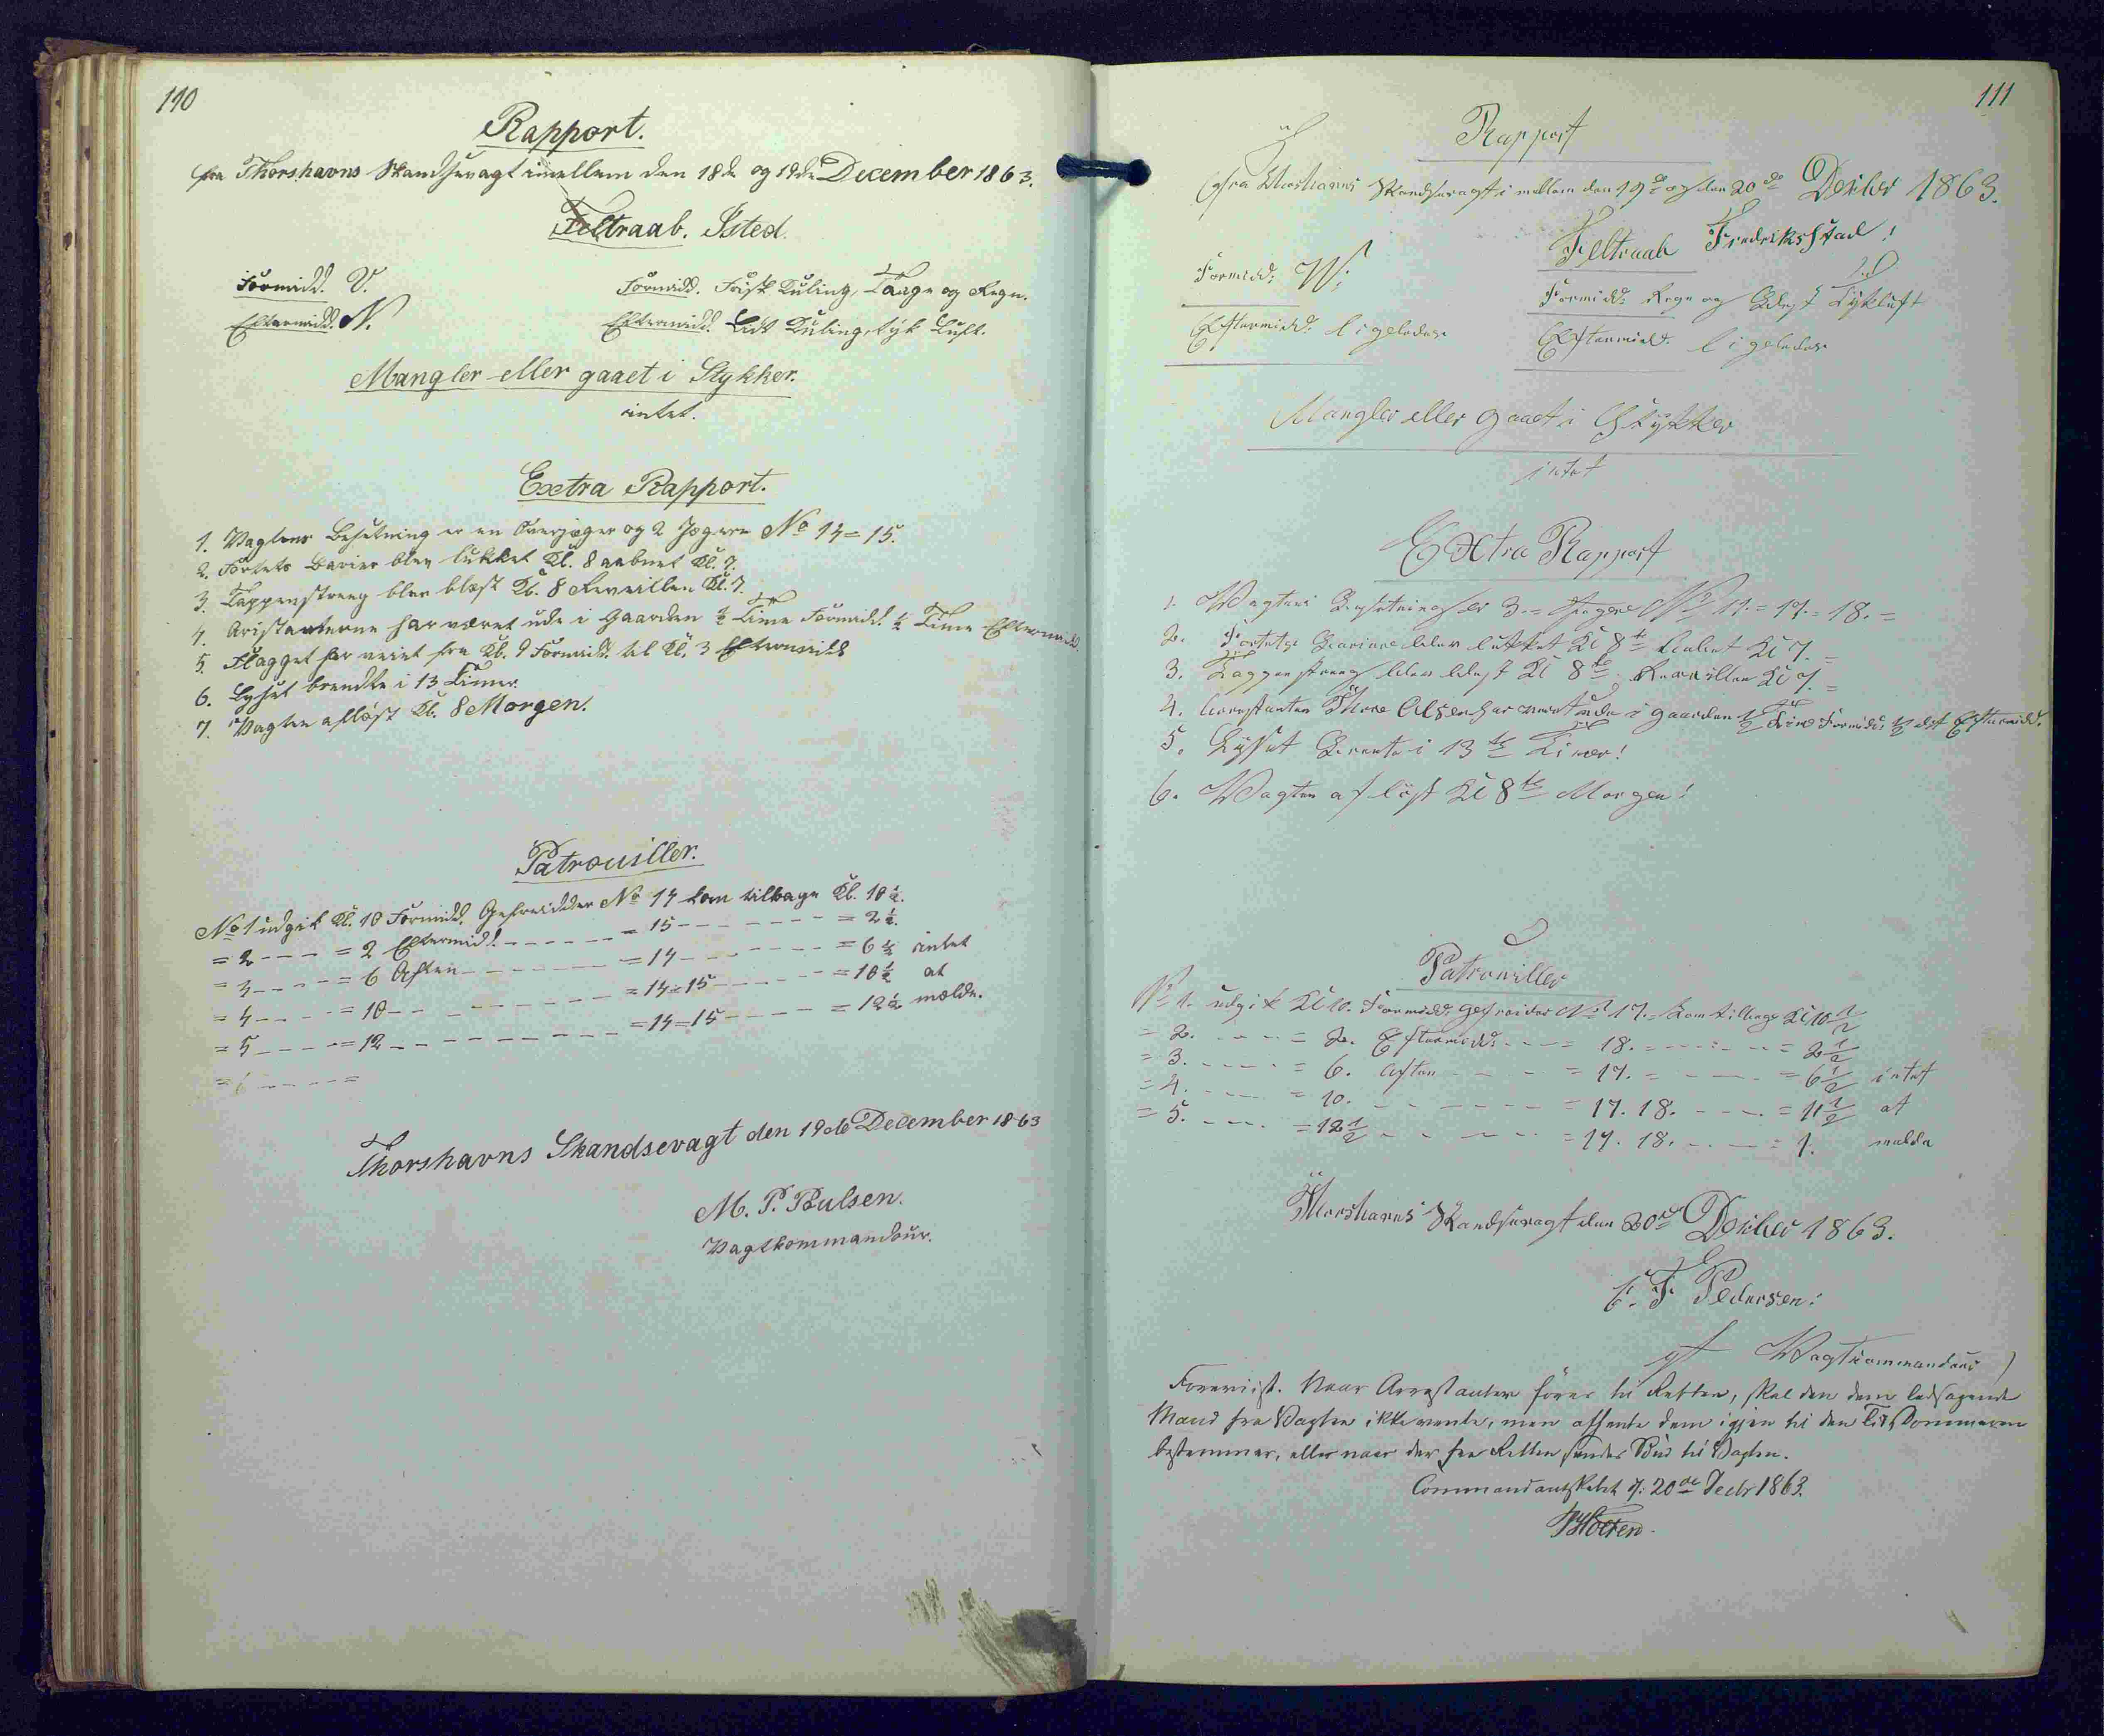 110
Rapport.
fra Thorshavns Skandsevagt imellem den 18de og 19de December 1863.
Feltraab. Isted.
Formidd. V.
Formidd. Frisk Kuling, Taage og Regn.
Eftermidd. N.
Eftermidd. Lidt Kuling, tyk Luft.
Mangler eller gaaet i Stykker.
intet.
Extra Rapport.
1. Vagtens Besetning er en Overjæger og 2 Jægere No 14 = 15.
2. Fortets Barier blev lukket Kl. 8 aabnet Kl. 7.
3. Tappenstreng blev blæst Kl. 8 Reveillen Kl. 7.
4. Aristanterne har været ude i Gaarden ½ Time Formidd. ½ Time Eftermidd.
5. Flagget har veiet fra Kl. 9 Formidd. til Kl. 3 Eftermidd
6. Lyset brendte i 13 Timer.
7. Vagten afløst Kl. 8 Morgen.
Patrouiller.
No 1 udgik Kl. 10 Formidd. Gefreidder No 14 kom tilbage Kl. 10½.
= 2 - - - = 2 Eftermid. - - - - - = 15 - - - - - = 2½.
= 3 - - - = 6 Aften - - - - - = 14 - - - - - = 6½ intet
= 4 - - - = 10 - - - - - = 14 = 15 - - - - - = 10½ at
= 5 - - - = 12 - - - - - = 14 = 15 - - - - - = 12½ mælde.
Thorshavns Skandsevagt den 19de December 1863
M. P. Poulsen.
Vagtkommandour.
111
Rapport
fra Thorshavns Skandsevagt imellem den 19de og den 20de Decbber 1863.
Feltraab Fredriksstad!
Formidd: W:
Formidd: Regn og Blæst Tykluft
Eftermidd: ligeledes
Eftermidd. ligeledes
Mangler eller gaaet i Stykker
intet
Extra Rapport
1. Wagtens Besetning er 3 = Jægere No 11 = 17 = 18. =
2. Fortets Bariere blev lukket Kl 8te aabnet Kl 7. =
3. Tappenstreng blev blæst Kl 8te. Reveillen Kl 7. =
4. Arrestanten Thore Olsen har været ude i gaarden ½ Time Formidd: ½ det Eftermidd.
5. Lyset Brente i 13te Timer!
6. Wagten afløst Kl 8te Morgen!
Patrouiller
No 1. udgik Kl 10. Formidd: gefreider No 17. = kom tilbage Kl 10½
= 2. - - - = 2. Eftermidd: - - - = 18. - - - = 2½
= 3. - - - = 6. Aften - - - = 17. = - - - = 6½ intet
= 4. - - - = 10. - - - = 17. 18. - - - = 11½ at
= 5. - - - = 12½ - - - = 17. 18. - - - = 1. melde
Thorshavns Skandsevagt den 20de Decbber 1863.
Pedersen:
Wagtkommandeur
Forevist. Naar Arrestanter føres til Retten, skal den dem ledsagende
Mand fra Vagten ikke vente, men afhente dem igjen til den Tid Dommeren
bestemmer, eller naar der fra Retten sendes Bud til Vagten.
Commandantskabet d: 20de Decbr 1863.